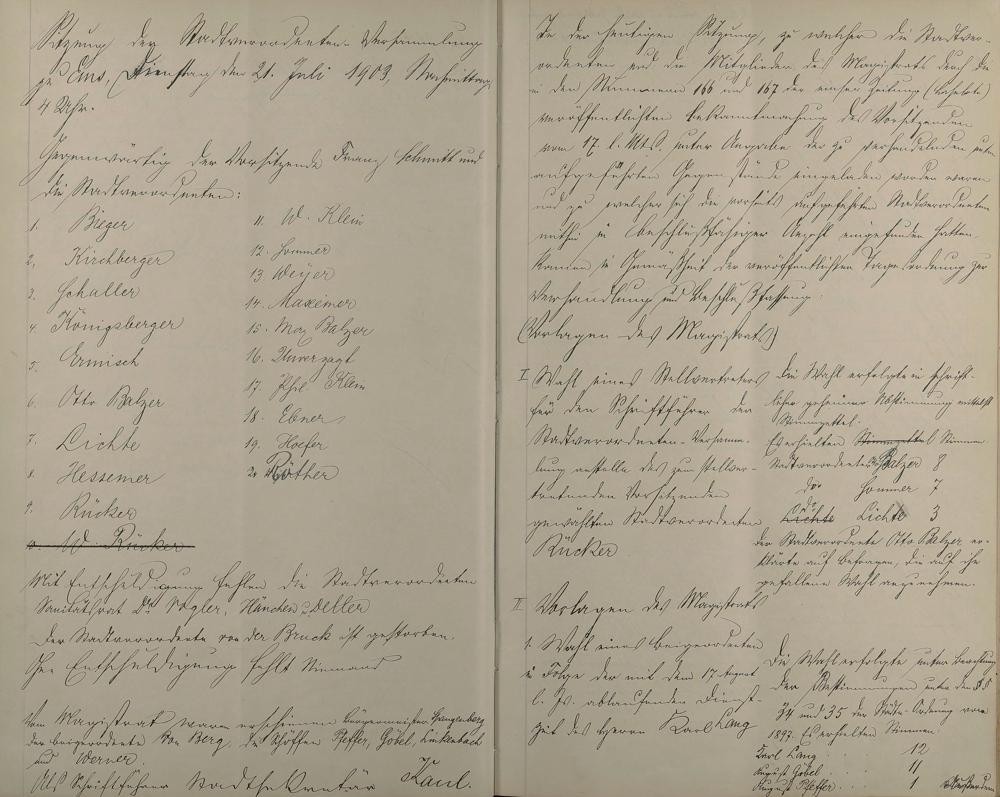 Sitzung der Stadtverordneten-Versammlung
zu Ems, Dienstag den 21. Juli 1903, Nachmittags
4 Uhr.
Gegenwärtig der Vorsitzende Franz Schmitt und
die Stadtverordneten:
1. Bieger
2. Kirchberger
3. Schaller
4. Königsberger
5. Ermisch
6. Otto Balzer
7. Lichte
8. Hessemer
9. Rücker
W. Rücker
11. W. Klein
12. Sommer
13. Weyer
14. Maximer
15. Max Balzer
16. Unverzagt
17. Phil. Klein
18. Ebner
19. Hoefer
20. Röther
Mit Entschuldigung fehlen die Stadtverordneten
Sanitätsrat Dr. Vogler, Hänchen u. Deller
Der Stadtverordnete von der Bruck ist gestorben.
Ohne Entschuldigung fehlt Niemand
Vom Magistrat waren erschienen Bürgermeister
der Beigeordnete von Berg, die Schöffen Pfeffer, Göbel, Linkenbach
und Werner.
Als Schriftführer Stadtsekretär Kaul.
In der heutigen Sitzung, zu welcher die Stadtver-
ordneten und die Mitglieder des Magistrats durch die
in den Nummern 166 und 167 der Emser Zeitung
veröffentlichten Bekanntmachung des Vorsitzenden
vom 17. l. Mts. unter Angabe der zu verhandelnden unten
aufgeführten Gegenstände eingeladen worden waren
und zu welcher sich die vorseits aufgeführten Stadtverordneten
mithin in beschlußfähiger Anzahl eingefunden hatten,
kamen in Gemäßheit der veröffentlichten Tagesordnung zur
Verhandlung und Beschlußfassung:
(Vorlagen des Magistrats)
I Wahl eines Stellvertreters
für den Schriftführer der
Stadtverordneten-Versamm-
lung anstelle des zum stellver-
tretenden Vorsitzenden
gewählten Stadtverordneten
Rücker
Die Wahl erfolgte in schrift-
licher geheimer Abstimmung mittelst
Stimmzettel.
Es erhielten Stimmzettel Stimmen
Stadtverordneter Otto Balzer 8
do. Sommer 7
do. Lichte Lichte 3
Der Stadtverordnete Otto Balzer er-
klärte auf Befragen, die auf ihn
gefallene Wahl anzunehmen.
II. Vorlagen des Magistrats
1. Wahl eines Beigeordneten
in Folge der mit dem 17. August
l. Js. ablaufenden Dienst-
zeit des Herrn Karl Lang
Die Wahl erfolgte unter Beachtung
der Bestimmungen unter den §§
34 und 35 der Städte-Ordnung vom
1897. Es erhielten Stimmen:
Karl Lang . . . 12
August Göbel . . . 11
August Pfeffer . . . 1